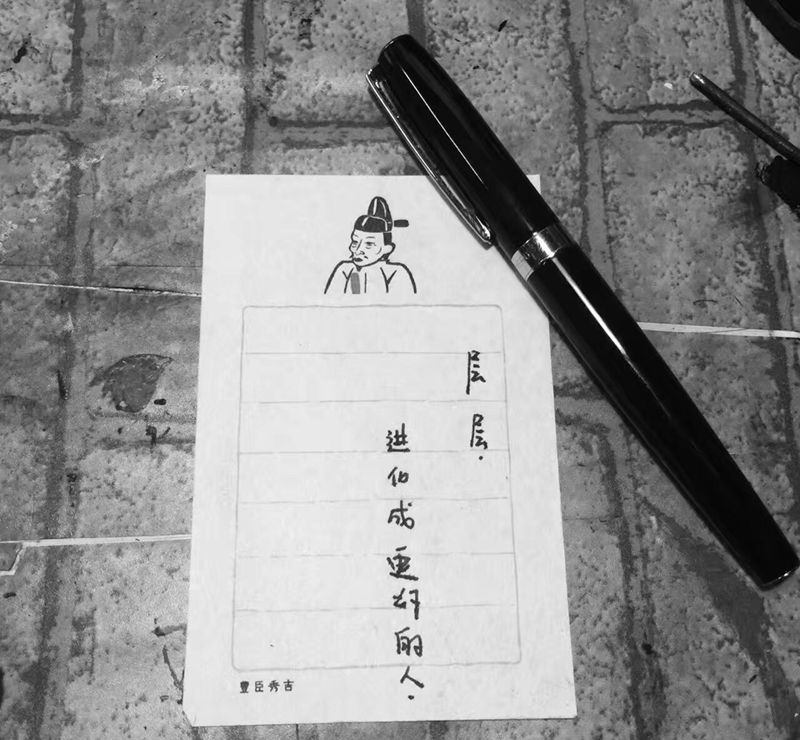 层层.
进化成更好的人.
豊臣秀吉